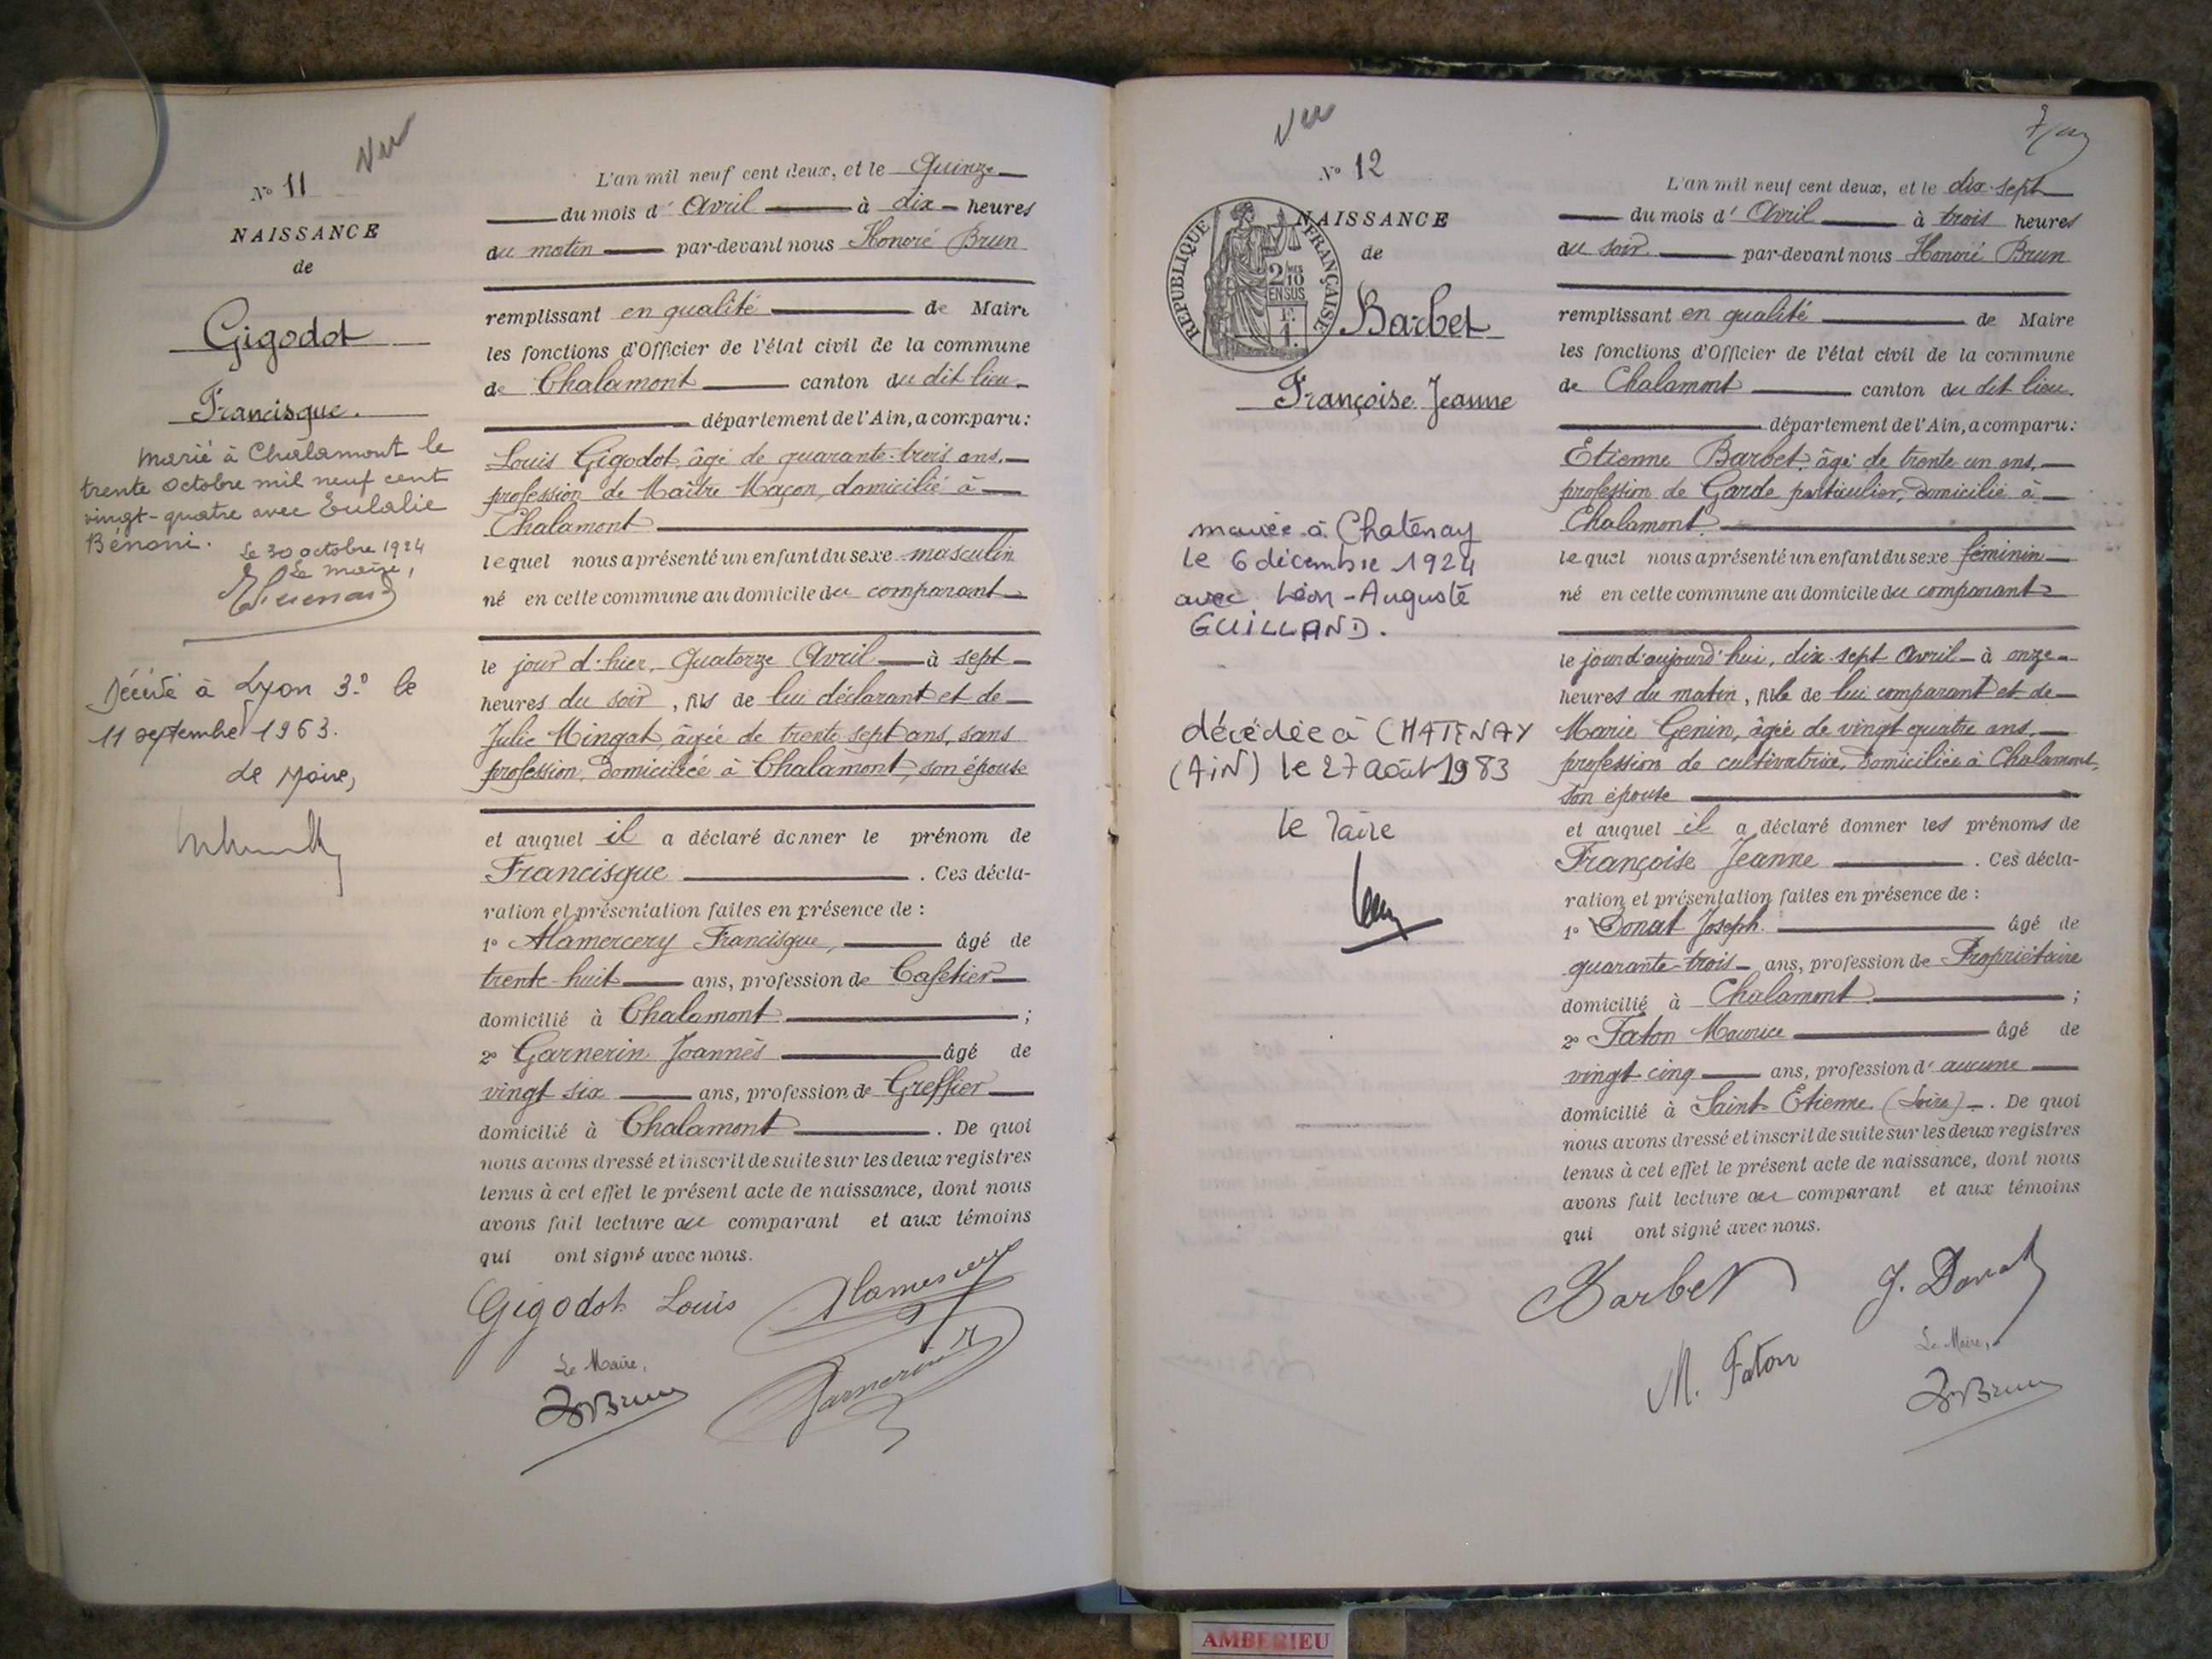 Vu
N° 11
NAISSANCE
de
Gigodot
Francisque.
marié à Chalamont le
trente octobre mil neuf cent
vingt-quatre avec Eulalie
Bénoni.
Le 30 octobre 1924
Le maire,
Décédé à Lyon 3.° le
11 septembre 1963.
Le Maire,
L'an mil neuf cent deux, et le Quinze
du mois d' Avril à dix heures
du matin par-devant nous Honoré Brun
remplissant en qualité de Maire
les fonctions d'Officier de l'état civil de la commune
de Chalamont canton du dit lieu
département de l'Ain, a comparu:
Louis Gigodot, âgé de quarante-trois ans,
profession de Maître Maçon, domicilié à
Chalamont
lequel nous a présenté un enfant du sexe masculin
né en cette commune au domicile du comparant
le jour d'hier, Quatorze Avril à sept
heures du soir, fils de lui déclarant et de
Julie Mingat, âgée de trente sept ans, sans
profession, domiciliée à Chalamont, son épouse
et auquel il a déclaré donner le prénom de
Francisque. Ces décla-
ration et présentation faites en présence de :
1° Alamercery Francisque, âgé de
trente-huit ans, profession de Cafetier
domicilié à Chalamont ;
2° Garnerin Joannès âgé de
vingt six ans, profession de Greffier
domicilié à Chalamont. De quoi
nous avons dressé et inscrit de suite sur les deux registres
tenus à cet effet le présent acte de naissance, dont nous
avons fait lecture au comparant et aux témoins
qui ont signé avec nous.
Gigodot Louis Alamercery
Le Maire,
HBrun Garnerin
Vu
N° 12
RÉPUBLIQUE FRANÇAISE
2/10
EN SUS
NAISSANCE
de
Barbet
Françoise Jeanne
mariée à Chatenay
le 6 décembre 1924
avec Léon-Auguste
GUILLAND.
décédée à CHATENAY
(AIN) le 27 août 1983
le Maire
L'an mil neuf cent deux, et le dix-sept
du mois d' Avril à trois heures
du soir par-devant nous Honoré Brun
remplissant en qualité de Maire
les fonctions d'Officier de l'état civil de la commune
de Chalamont canton du dit lieu
département de l'Ain, a comparu:
Etienne Barbet, âgé de trente-un ans,
profession de Garde particulier, domicilié à
Chalamont
lequel nous a présenté un enfant du sexe féminin
né en cette commune au domicile du comparant
le jour d'aujourd'hui, dix-sept Avril à onze
heures du matin, fille de lui comparant et de
Marie Genin, âgée de vingt quatre ans,
profession de cultivatrice, domiciliée à Chalamont,
son épouse
et auquel il a déclaré donner les prénoms de
Françoise Jeanne. Ces décla-
ration et présentation faites en présence de :
1° Donat Joseph. âgé de
quarante-trois ans, profession de Propriétaire
domicilié à Chalamont ;
2° Faton Maurice âgé de
vingt cinq ans, profession d' aucune
domicilié à Saint Etienne (Loire). De quoi
nous avons dressé et inscrit de suite sur les deux registres
tenus à cet effet le présent acte de naissance, dont nous
avons fait lecture au comparant et aux témoins
qui ont signé avec nous.
Barbet J. Donat
M. Faton Le Maire,
HBrun
AMBERIEU